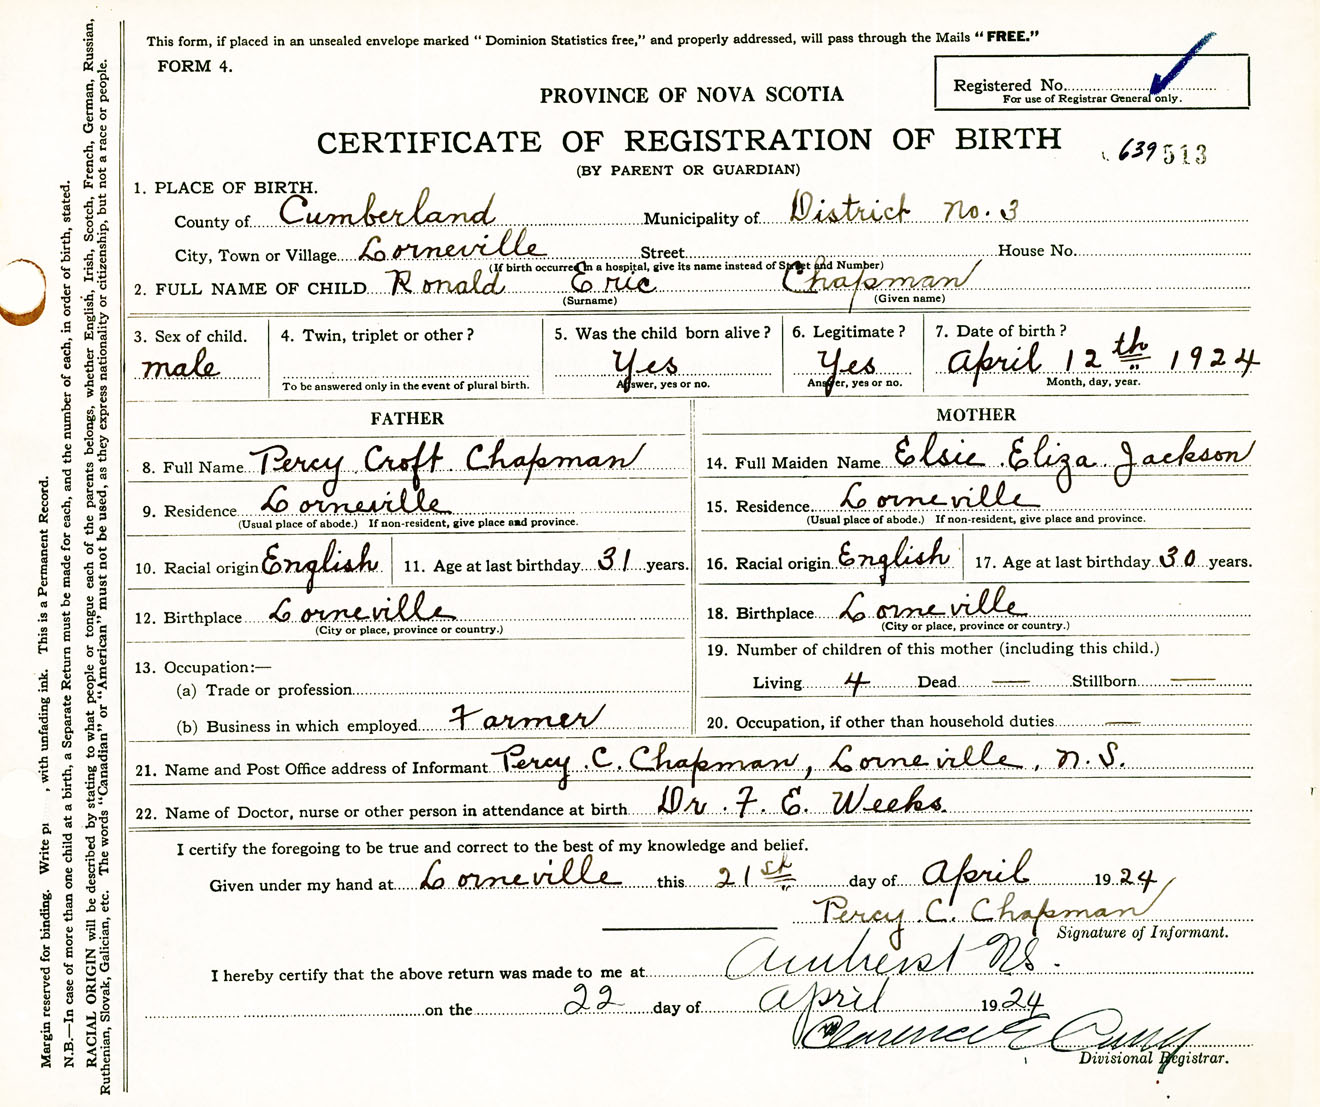 This form, if placed in an unsealed envelope marked " Dominion Statistics free," and properly addressed, will pass through the Mails " FREE."
FORM 4.
Registered No.
For use of Registrar General only.
PROVINCE OF NOVA SCOTIA
CERTIFICATE OF REGISTRATION OF BIRTH
639 513
(BY PARENT OR GUARDIAN)
1. PLACE OF BIRTH.
County of Cumberland Municipality of District No. 3
City, Town or Village Lorneville Street House No.
(If birth occurred in a hospital, give its name instead of Street and Number)
2. FULL NAME OF CHILD Ronald Eric Chapman
(Surname) (Given name)
3. Sex of child. 4. Twin, triplet or other ? 5. Was the child born alive ? 6. Legitimate ? 7. Date of birth ?
male Yes Yes April 12th 1924
To be answered only in the event of plural birth. Answer, yes or no. Answer, yes or no. Month, day, year.
FATHER MOTHER
8. Full Name Percy Croft Chapman 14. Full Maiden Name Elsie Eliza Jackson
9. Residence Lorneville 15. Residence Lorneville
(Usual place of abode.) If non-resident, give place and province. (Usual place of abode.) If non-resident, give place and province.
10. Racial origin English 11. Age at last birthday 31 years. 16. Racial origin English 17. Age at last birthday 30 years.
12. Birthplace Lorneville 18. Birthplace Lorneville
(City or place, province or country.) (City or place, province or country.)
13. Occupation:— 19. Number of children of this mother (including this child.)
(a) Trade or profession Living 4 Dead — Stillborn —
(b) Business in which employed Farmer 20. Occupation, if other than household duties —
21. Name and Post Office address of Informant Percy C. Chapman, Lorneville, N.S.
22. Name of Doctor, nurse or other person in attendance at birth Dr F. E. Weeks.
I certify the foregoing to be true and correct to the best of my knowledge and belief.
Given under my hand at Lorneville this 21st day of April 1924
Percy C. Chapman
Signature of Informant.
I hereby certify that the above return was made to me at Amherst NS.
on the 22 day of April 1924
Clarence E
Divisional Registrar.
Margin reserved for binding. Write , with unfading ink. This is a Permanent Record.
N.B.—In case of more than one child at a birth, a Separate Return must be made for each, and the number of each, in order of birth, stated.
RACIAL ORIGIN will be described by stating to what people or tongue each of the parents belongs, whether English, Irish, Scotch, French, German, Russian,
Ruthenian, Slovak, Galician, etc. The words "Canadian" or "American" must not be used, as they express nationality or citizenship, but not a race or people.